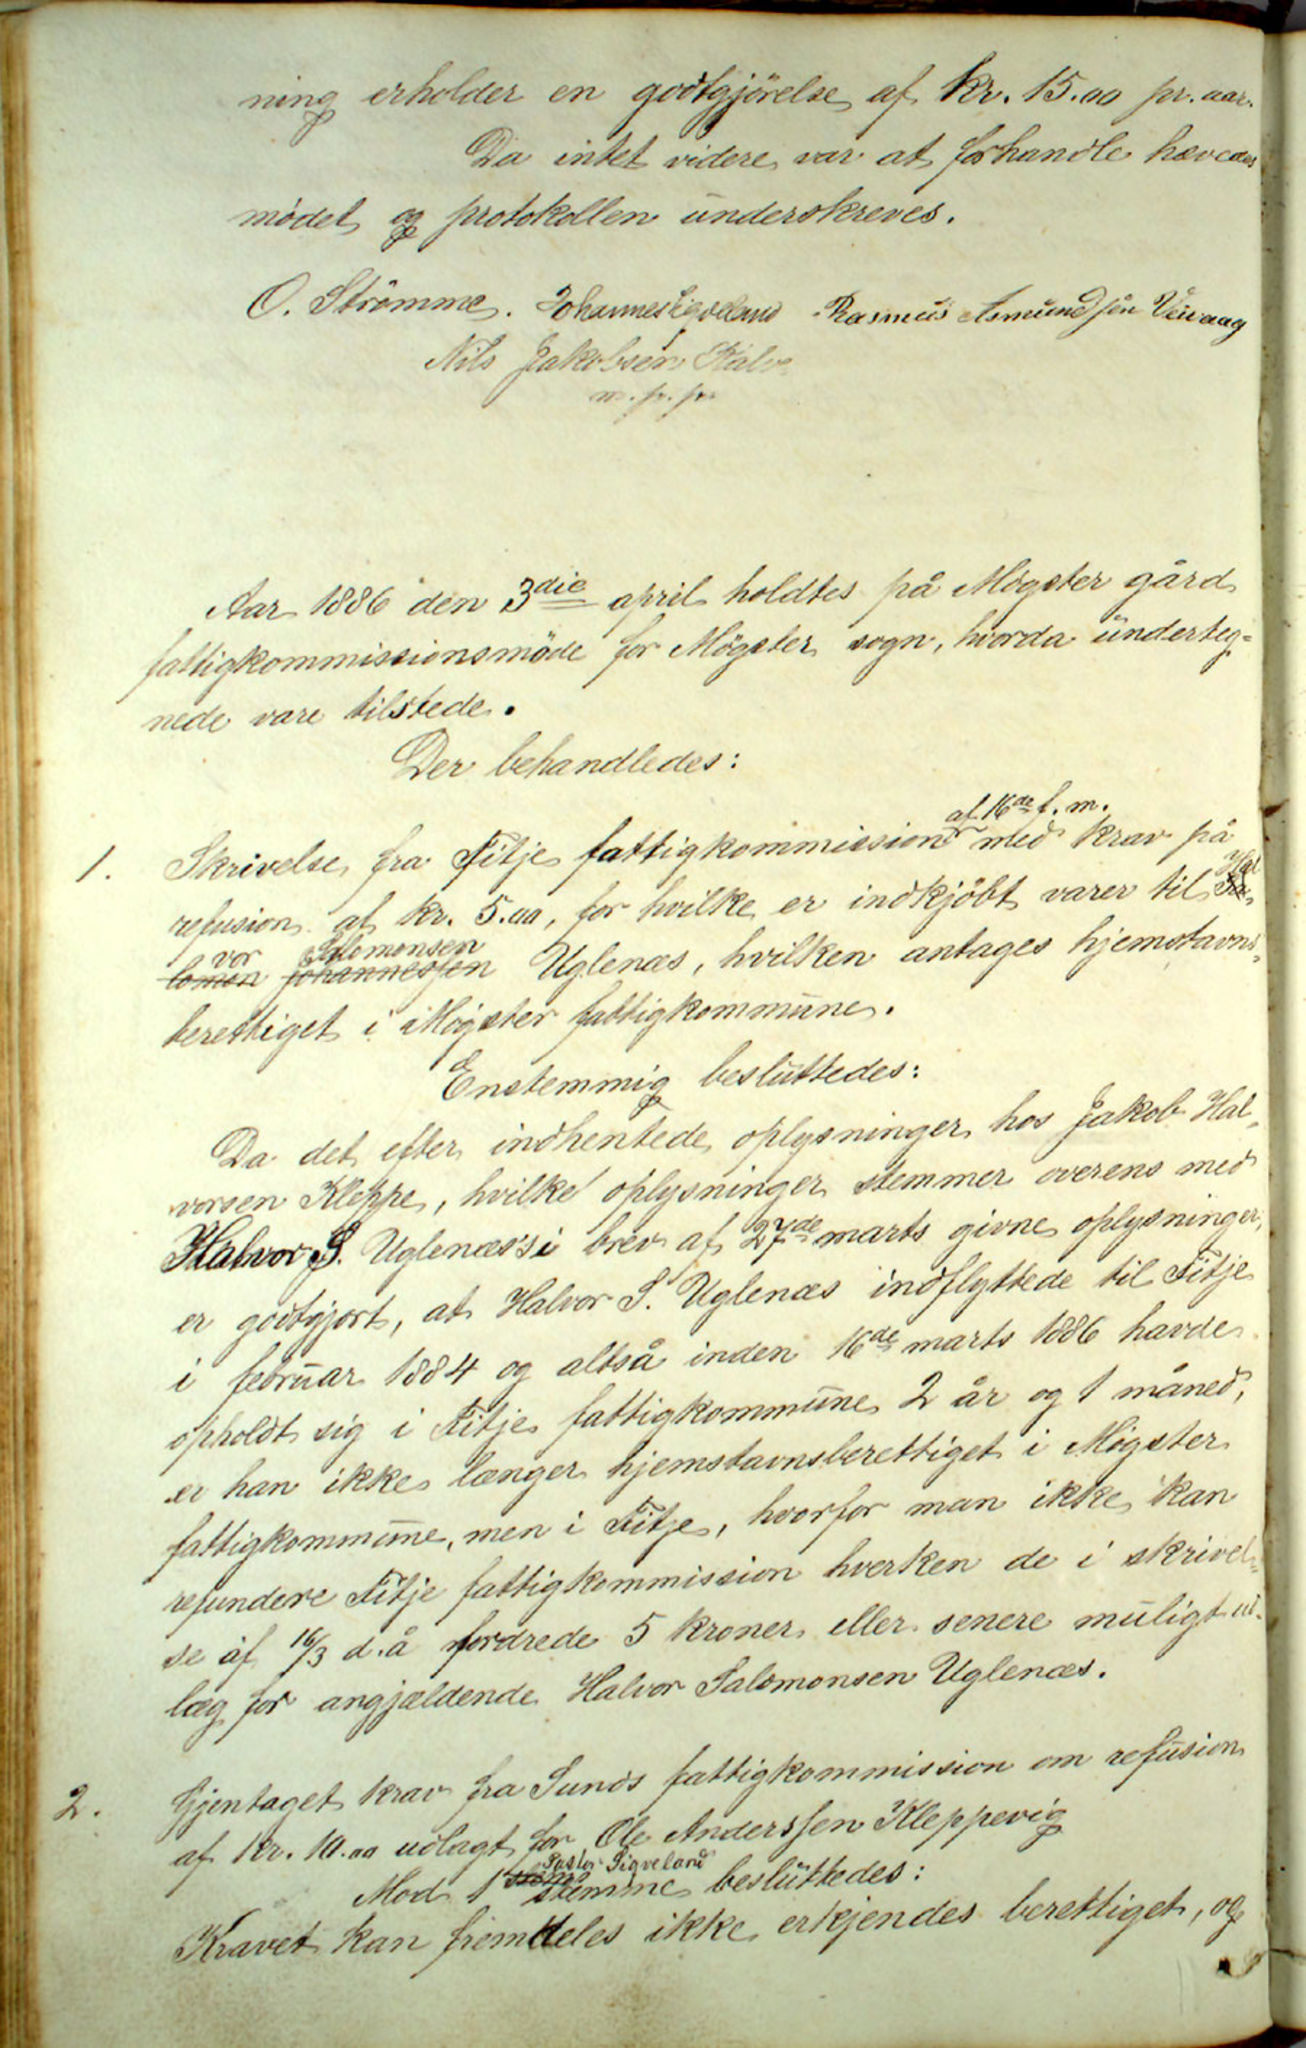 ning erholder en godtgjörelse af kr. 15.00 pr. aar.
Da intet videre var at forhandle hævedes
mödet og protokollen underskreves.
O. Strömme. Johannes Sigveland Rasmus Asmundsen Veivaag
Nils Jakobsen Kalve
m. p. p.
Aar 1886 den 3die april holdtes på Mögster gård
fattigkommissionsmöde for Mögster sogn, hvorda underteg-
nede vare tilstede.
Der behandledes:
af 16de f. m.
1. Skrivelse fra Fitje fattigkommission med krav på
refusion af kr. 5.00, for hvilke er indkjöbt varer til Sa- Hal
vor Salomonsen
lomon Johannessen Uglenæs, hvilken antages hjemstavns-
berettiget i Mögster fattigkommune.
Enstemmig besluttedes:
Da det efter indhentede oplysninger hos Jakob Hal-
vorsen Kleppe, hvilke oplysninger stemmer overens med
Halvor S. Uglenæs's i brev af 27de marts givne oplysninger,
er godtgjort, at Halvor S. Uglenæs indflyttede til Fitje
i februar 1884 og altså inden 16de marts 1886 havde
opholdt sig i Fitje fattigkommune 2 år og 1 måned,
er han ikke længer hjemstavnsberettiget i Mögster
fattigkommune, men i Fitje, hvorfor man ikke kan
refundere Fitje fattigkommission hverken de i skrivel-
se af 16/3 d. å fordrede 5 kroner eller senere muligt ud-
læg for angjældende Halvor Salomonsen Uglenæs.
2. Gjentaget krav fra Sunds fattigkommission om refusion
af kr. 10.00 udlagt for Ole Anderssen Kleppevig
Pastor Sigveland
Mod 1 stemme besluttedes:
Kravet kan fremdeles ikke erkjendes berettiget, og